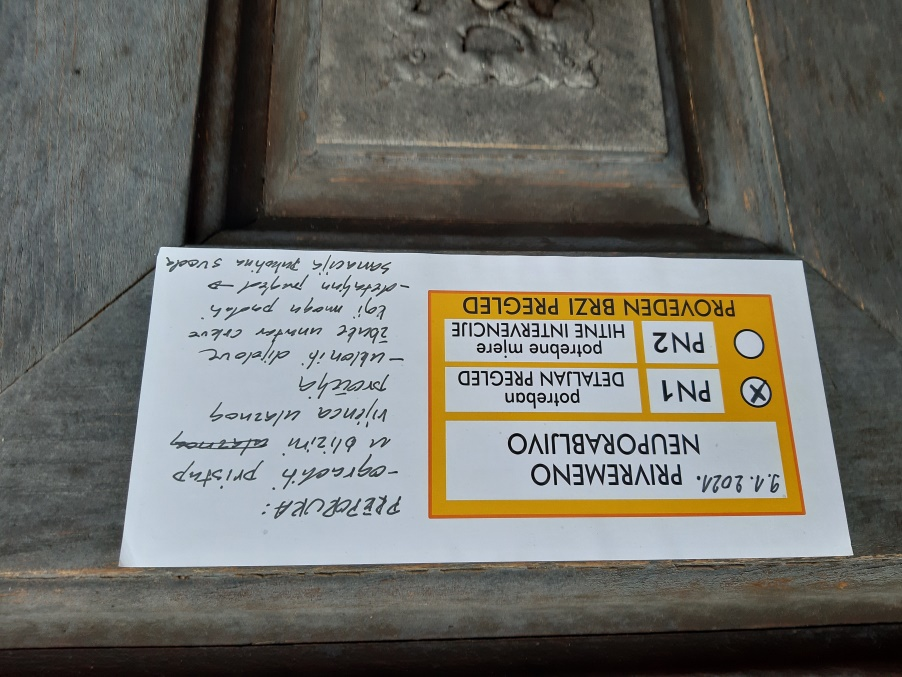 9.1.2021. PRIVREMENO
NEUPORABLJIVO
PN1 potreban
DETALJAN PREGLED
PN2 potrebne mjere
HITNE INTERVENCIJE
PROVEDEN BRZI PREGLED
PREPORUKA:
-ograditi pristup
u blizini ulaznog
vijenca ulaznog
pročelja
-ukloniti dijelove
žbuke unutar crkve
koji mogu pasti
-detaljan pregled →
sanacija pukotina svoda